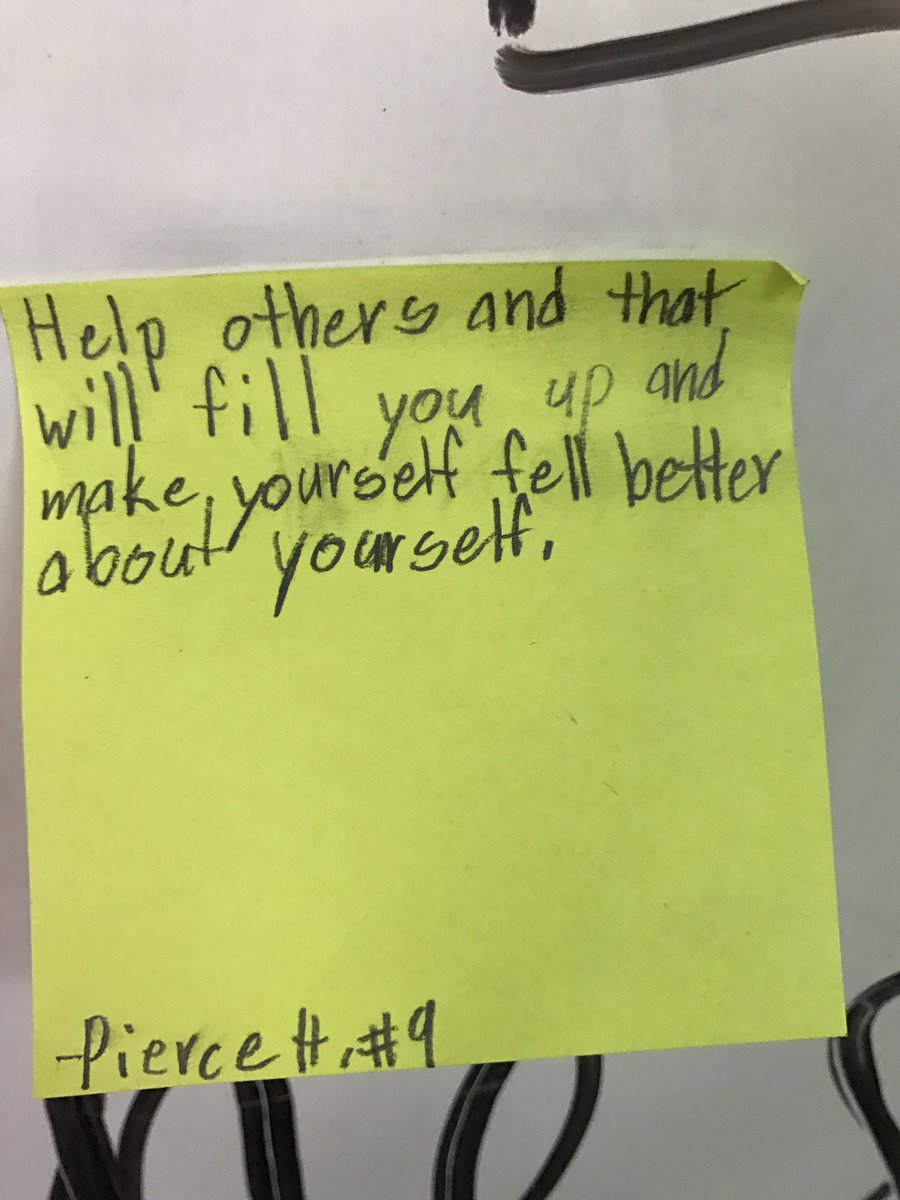 Help others and that
will fill you up and
make yourself fell better
about yourself.
-Pierce H. #9